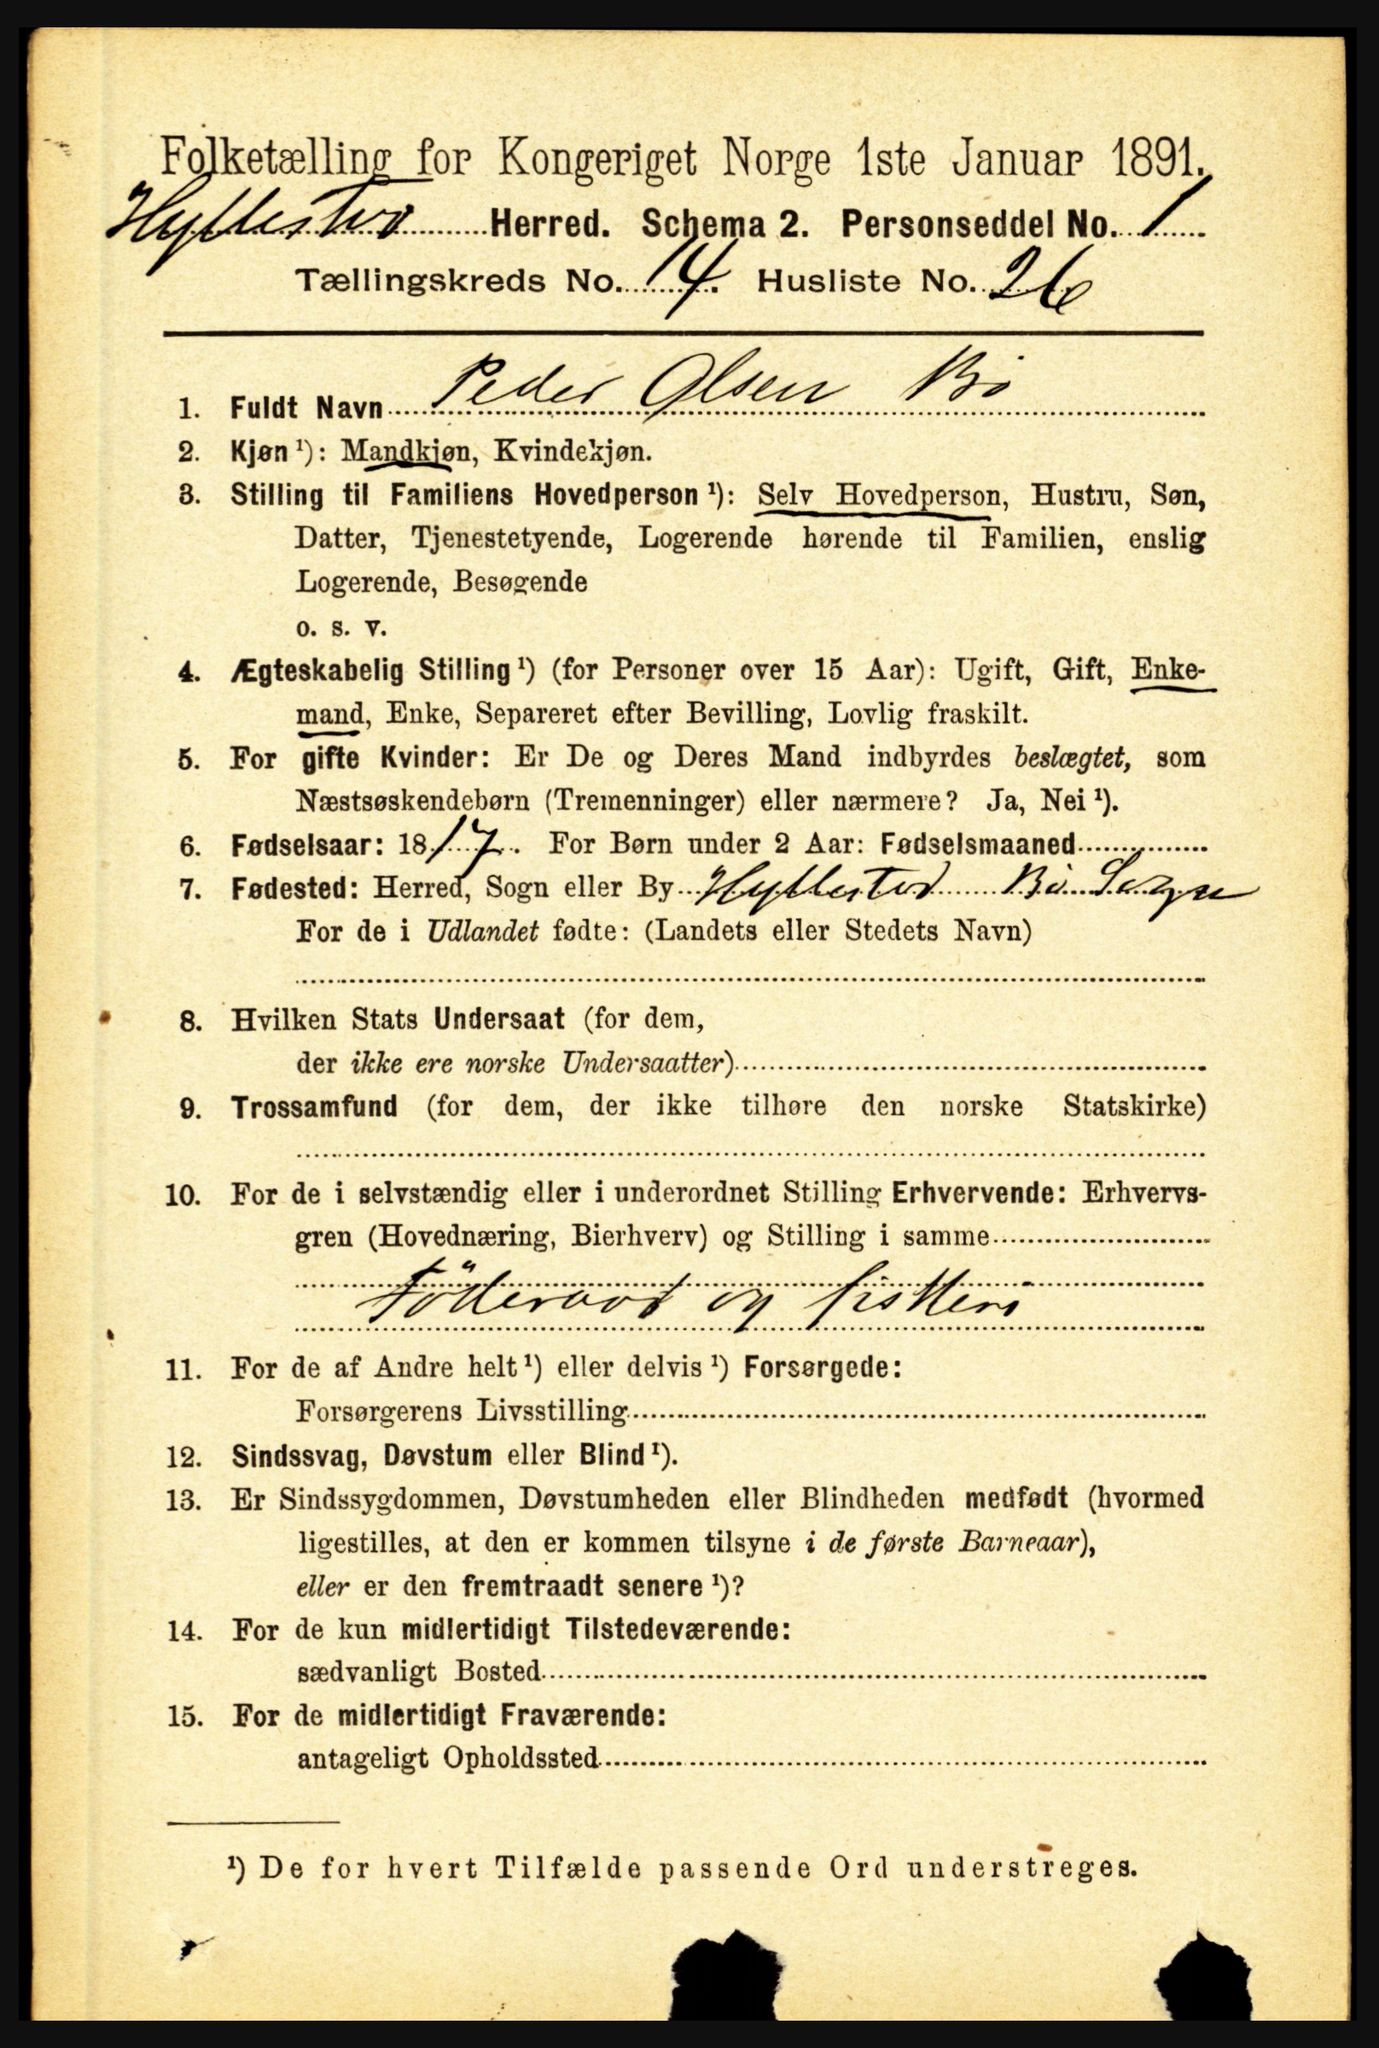 Folketælling for Kongeriget Norge 1ste Januar 1891.
Hyllestad Herred. Schema 2. Personseddel No. 1
Tællingskreds No. 14. Husliste No. 26
1. Fuldt Navn Peder Olsen Bö
2. Kjøn¹): Mandkjøn, Kvindekjøn.
3. Stilling til Familiens Hovedperson¹): Selv Hovedperson, Hustru, Søn,
Datter, Tjenestetyende, Logerende hørende til Familien, enslig
Logerende, Besøgende
o. s. v.
4. Ægteskabelig Stilling¹) (for Personer over 15 Aar): Ugift, Gift, Enke-
mand, Enke, Separeret efter Bevilling, Lovlig fraskilt.
5. For gifte Kvinder: Er De og Deres Mand indbyrdes beslægtet, som
Næstsøskendebørn (Tremenninger) eller nærmere? Ja, Nei¹).
6. Fødselsaar: 1817. For Børn under 2 Aar: Fødselsmaaned
7. Fødested: Herred, Sogn eller By Hyllestad Bö Sogn
For de i Udlandet fødte: (Landets eller Stedets Navn)
8. Hvilken Stats Undersaat (for dem,
der ikke ere norske Undersaatter)
9. Trossamfund (for dem, der ikke tilhøre den norske Statskirke)
10. For de i selvstændig eller i underordnet Stilling Erhvervende: Erhvervs-
gren (Hovednæring, Bierhverv) og Stilling i samme
Föderaad og fiskeri
11. For de af Andre helt¹) eller delvis¹) Forsørgede:
Forsørgerens Livsstilling
12. Sindssvag, Døvstum eller Blind¹).
13. Er Sindssygdommen, Døvstumheden eller Blindheden medfødt (hvormed
ligestilles, at den er kommen tilsyne i de første Barneaar),
eller er den fremtraadt senere¹)?
14. For de kun midlertidigt Tilstedeværende:
sædvanligt Bosted
15. For de midlertidigt Fraværende:
antageligt Opholdssted
¹) De for hvert Tilfælde passende Ord understreges.